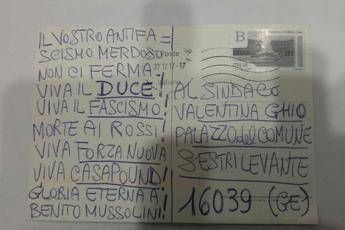 IL VOSTRO ANTIFA=
SCISMO MERDOSO
NON CI FERMA!
VIVA IL DUCE!
VIVA IL FASCISMO!
MORTE AI ROSSI!
VIVA FORZA NUOVA
VIVA CASAPOUND!
GLORIA ETERNA A
BENITO MUSSOLINI!
B
AL SINDACO
VALENTINA GHIO
PALAZZO del COMUNE
SESTRI LEVANTE
16039 (GE)